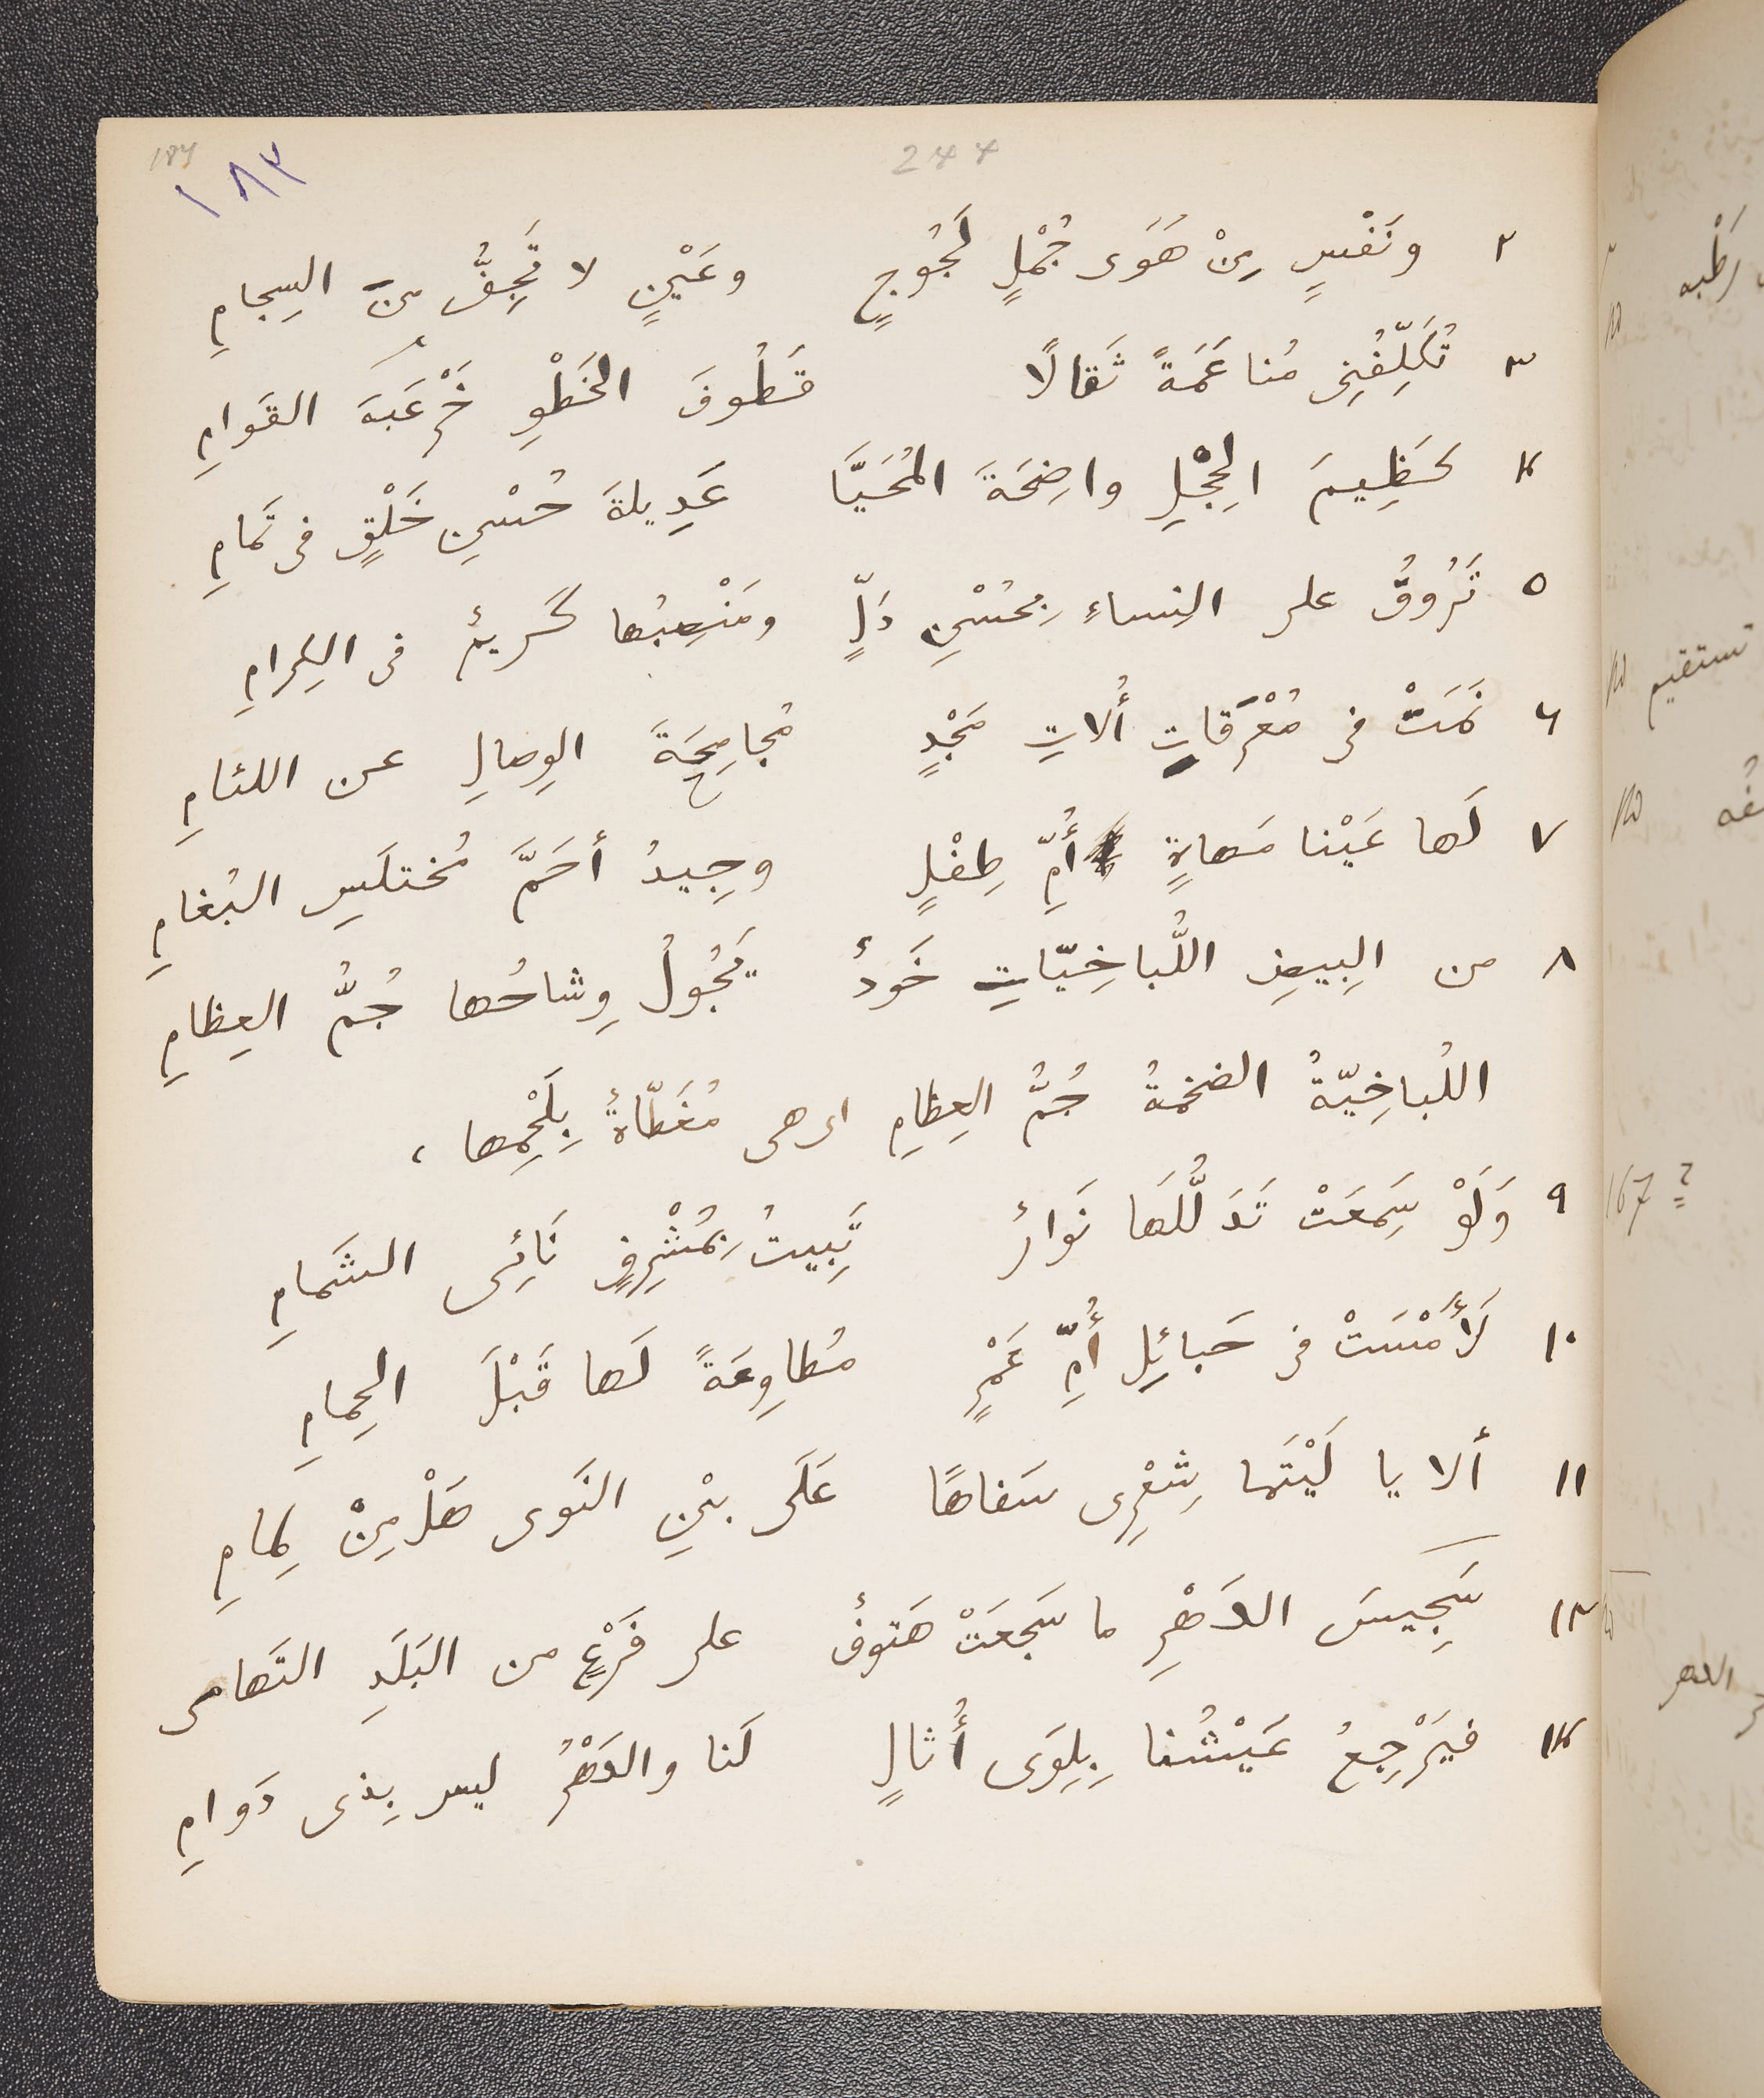 184
١٨٣
244
٢ ونَفْسٍ مِنْ هَوَى جُمْلٍ لَجُوجٍ وعَيْنٍ لا تَجِفُّ مِنَ السِجامِ
٣ تُكَلِّفُنِى مُناعَمَةً ثَقالًا قَطُوفَ الخَطْوِ خَرْعَبَةَ القَوامِ
٤ كَظِيمَ الحِجْلِ واضِحَةَ المُحَيَّا عَدِيلةَ حُسْنِ خَلْقٍ فى تَمامِ
٥ تَرُوقُ على النِساءِ بِحُسْنِ دَلٍّ ومَنْصِبُها كَريمٌ فى الكِرامِ
٦ نَمَتْ فى مُعْرَقاتٍ أُلاتِ مَجْدٍ مُجامِحَةَ الوِصالِ عن اللئامِ
٧ لَها عَيْنا مَهاةٍ أُمِّ طِفْلٍ وجِيدُ أحَمَّ مُختلَسِ البُغامِ
٨ من البِيضِ اللُّباخِيّاتِ خَودٌ يَجُولُ وِشاحُها جُمُّ العِظامِ
اللُباخِيّةُ الضخمةُ جُمُّ العِظامِ اى هى مُغَطّاةٌ بِلَحْمِها،
٩ وَلَوْ سَمِعَتْ تَدَلُّلَهَا نَوارٌ تَبِيتُ بِمُشْرِفٍ نَائِى الشَمامِ
١٠ لَأَمْسَتْ فى حَبائِلِ أُمِّ عَمْرٍ مُطاوِعَةً لَها قَبْلَ الحِمامِ
١١ ألا يا لَيْتَما شِعْرِى سَفاهًا عَلَى بيْنِ النَوى هَلْ مِنْ لِمامِ
١٢ سَجِيسَ الدَهْرِ ما سَجَعَتْ هَتوفٌ على فَرْعٍ من البَلَدِ التَهامى
١٣ فيَرْجِعُ عَيْشُنا بِلِوَى أُثالٍ لَنا والدَهْرُ ليس بِذى دَوامِ
رَطْبه
تستقيم
167 ?
الدهر